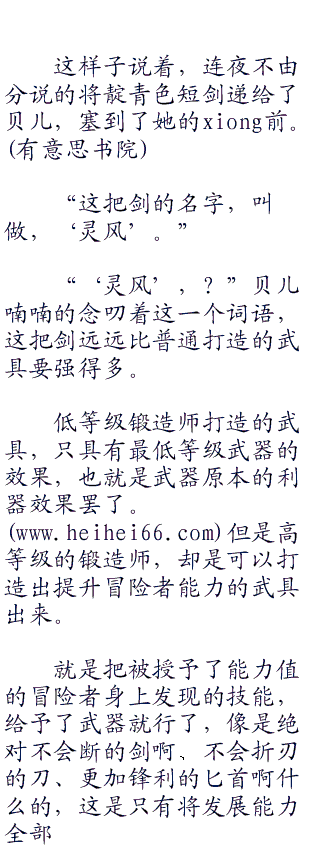 这样子说着，连夜不由
分说的将靛青色短剑递给了
贝儿，塞到了她的xiong前。
(有意思书院)
“这把剑的名字，叫
做，‘灵风’。”
“‘灵风’，？”贝儿
喃喃的念叨着这一个词语，
这把剑远远比普通打造的武
具要强得多。
低等级锻造师打造的武
具，只具有最低等级武器的
效果，也就是武器原本的利
器效果罢了。
(www.heihei66.com)但是高
等级的锻造师，却是可以打
造出提升冒险者能力的武具
出来。
就是把被授予了能力值
的冒险者身上发现的技能，
给予了武器就行了，像是绝
对不会断的剑啊、不会折刃
的刀、更加锋利的匕首啊什
么的，这是只有将发展能力
全部